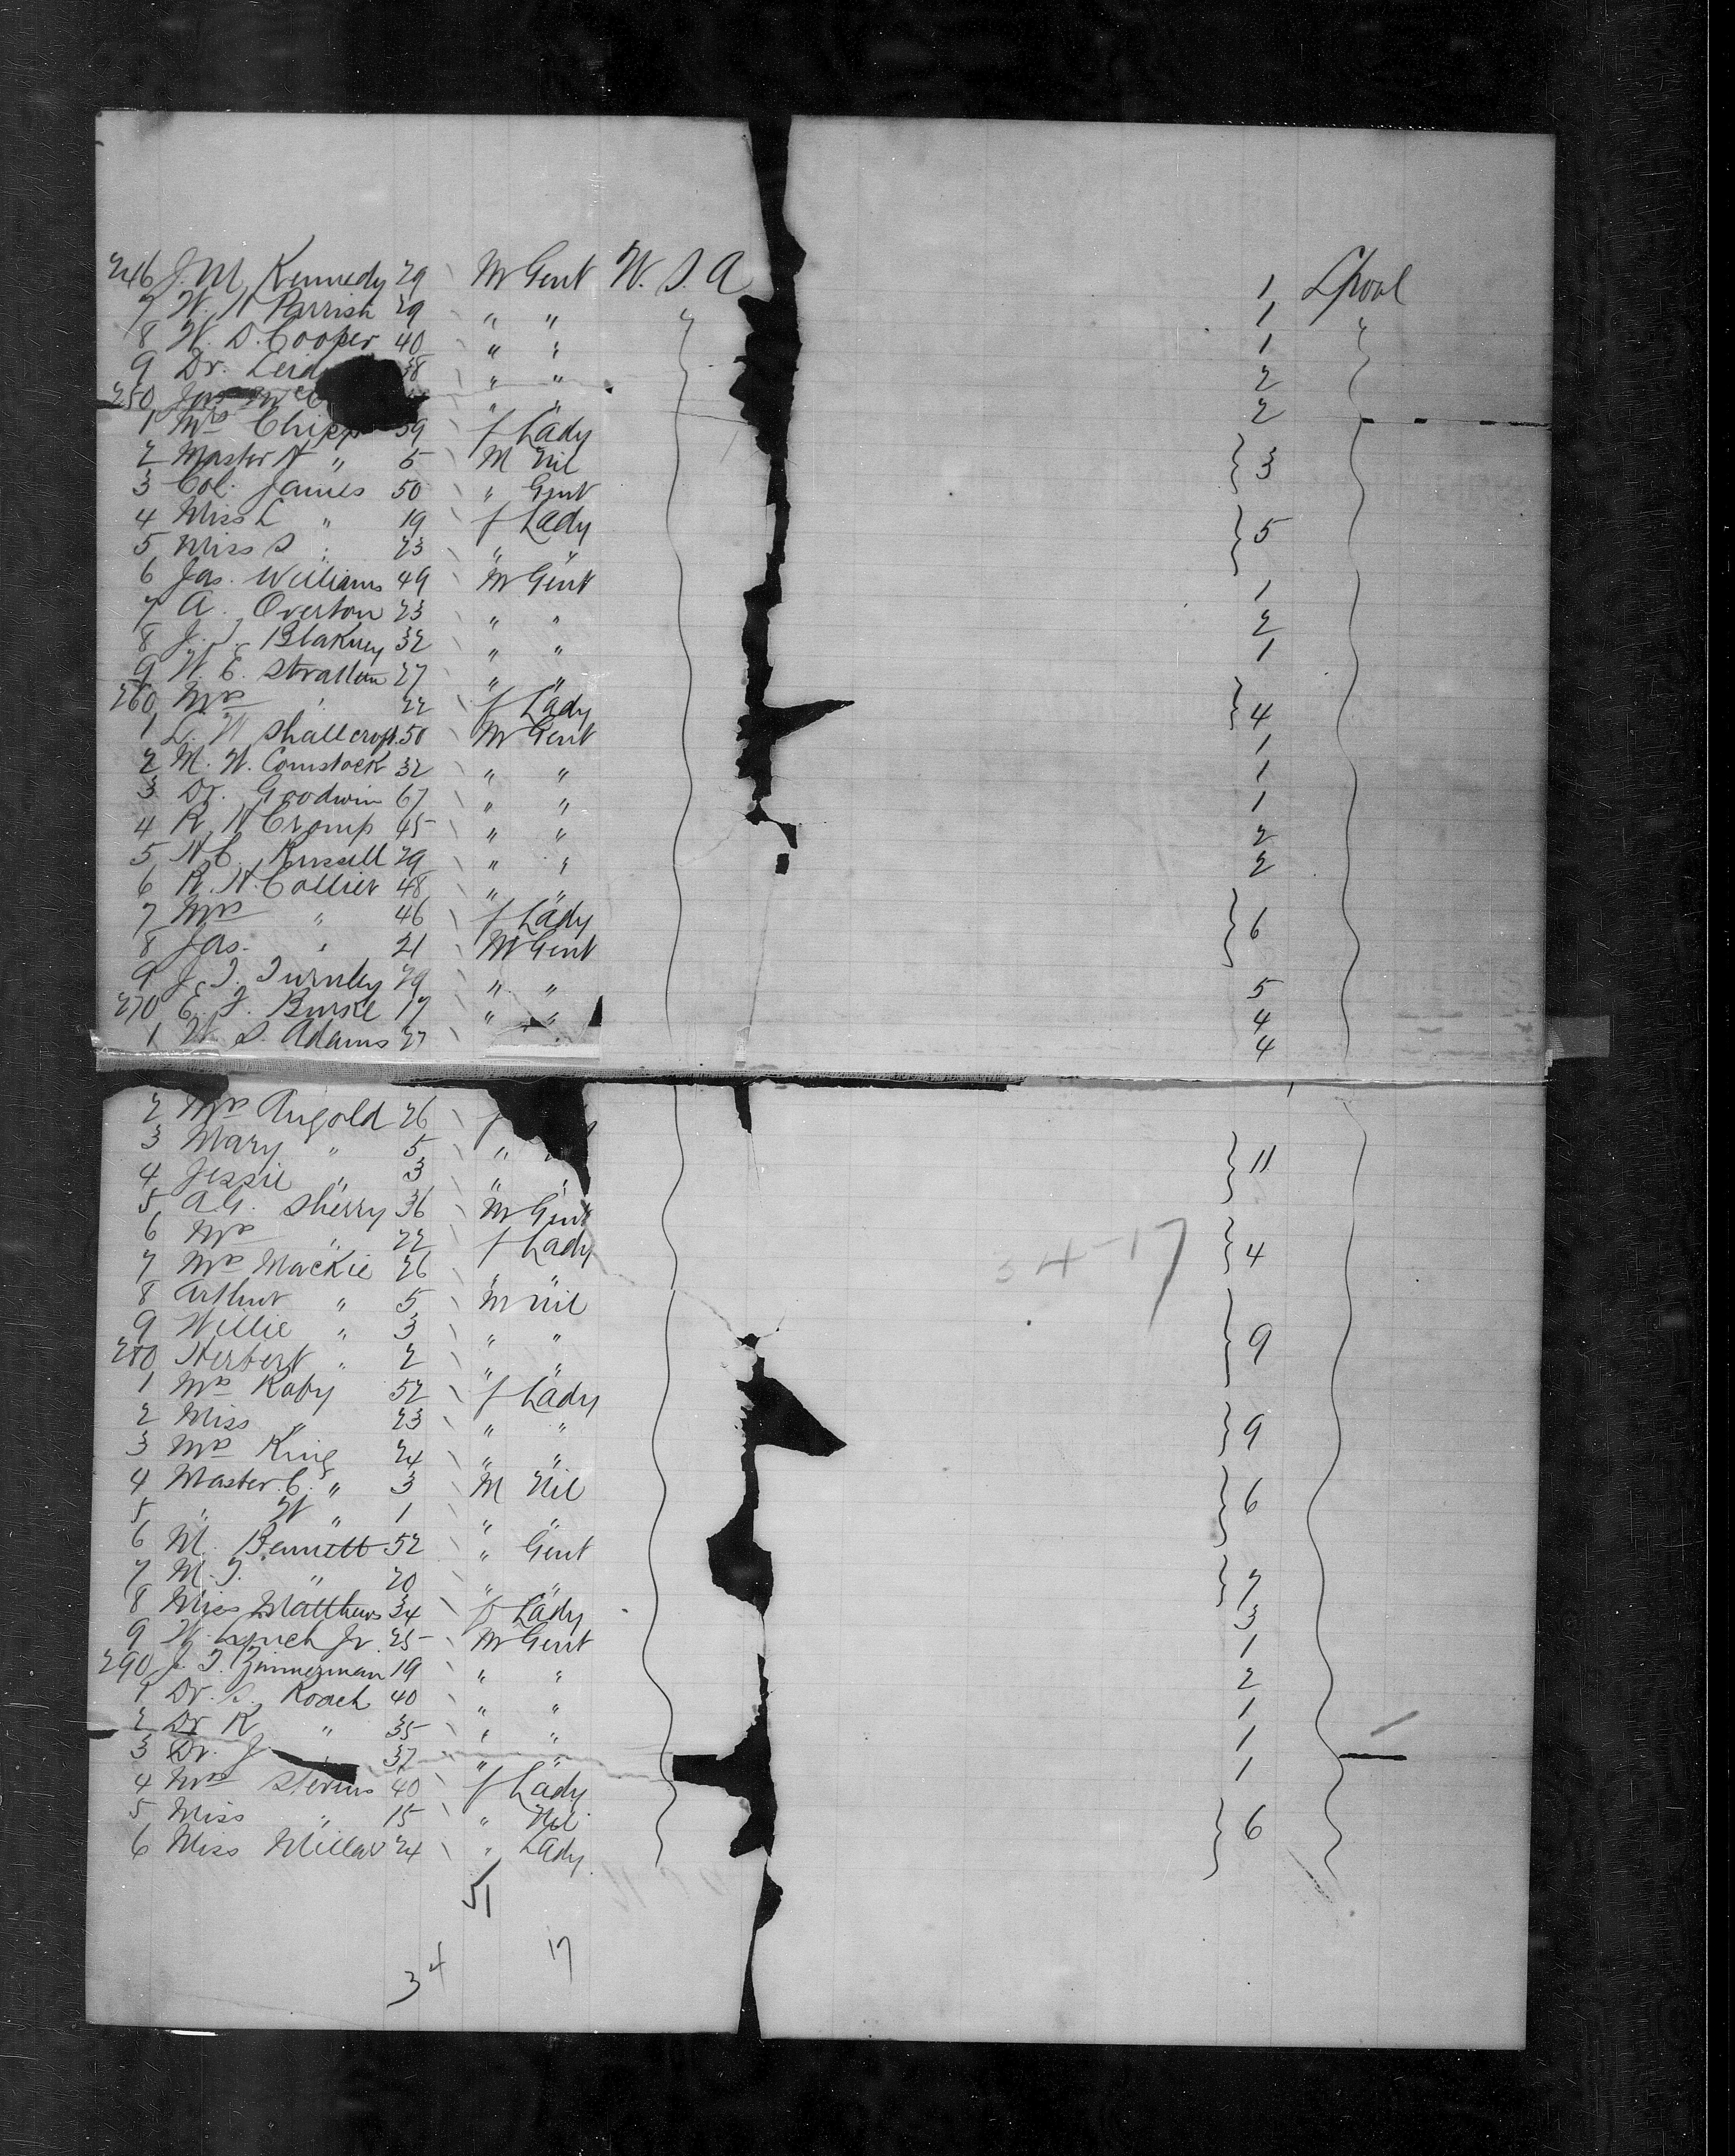 246 J. M. Kennedy 29 \ M Gent U. S. A 1 Lpool
7 W. H Parrish 29 " " " 1 "
8 W. D. Cooper 40 \ " " 1
9 Dr. Leid 38 \ " " 2
250 Jas Mc " " 2
1 Mrs Chipp 39 \ f Lady
2 Master H " 5 \ M Nil } 3
3 Col. James 50 \ " Gent
4 Miss L " 19 \ f Lady } 5
5 Miss S " 23 \ " "
6 Jas. Williams 49 \ M Gent 1
7 A. Overton 23 \ " " 2
8 J. T. Blakney 32 \ " " 1
9 W. E. Stratton 27 \ " "
260 Mrs " 22 \ f Lady } 4
1 L. W Shallcross 50 \ M Gent 1
2 M. W. Comstock 32 \ " " 1
3 Dr. Goodwin 67 \ " " 1
4 R H Cromp 45 \ " " 2
5 H C. Russell 29 \ " " 2
6 R. H. Collier 48 \ " "
7 Mrs " 46 \ f Lady } 6
8 Jas. " 21 \ M Gent
9 J. T. Turnley 29 \ " " 5
270 E. F. Burke 17 \ " " 4
1 W. S. Adams 27 \ 4
2 Mrs Angold 26 \ f
3 Mary " 5 \ " " } 11
4 Jessie " 3 \ " "
5 A G. Sherry 36 \ M Gent
6 Mrs " 22 \ f Lady } 4
34-17
7 Mrs Mackie 26 \ " "
8 Arthur " 5 \ M Nil
9 Willie " 3 \ " " } 9
280 Herbert " 2 \ " "
1 Mrs Raby 52 \ f Lady
2 Miss " 23 \ " " } 9
3 Mrs King 24 \ " "
4 Master C. " 3 \ M Nil } 6
5 " W " 1 \ " "
6 M. Bennett 52 \ " Gent
7 M. T. " 20 \ " " } 7
8 Miss Matthews 34 \ f Lady 3
9 W. Lynch Jr. 25 \ M Gent 1
290 J. T. Zimmerman 19 \ " " 2
1 Dr. S. Roach 40 \ " " 1
2 Dr R " 35 \ " " 1
3 Dr. J " 37 \ " " 1
4 Mrs Sterns 40 \ f Lady
5 Miss " 15 \ " Nil } 6
6 Miss Millar 24 \ " Lady
51
34 17